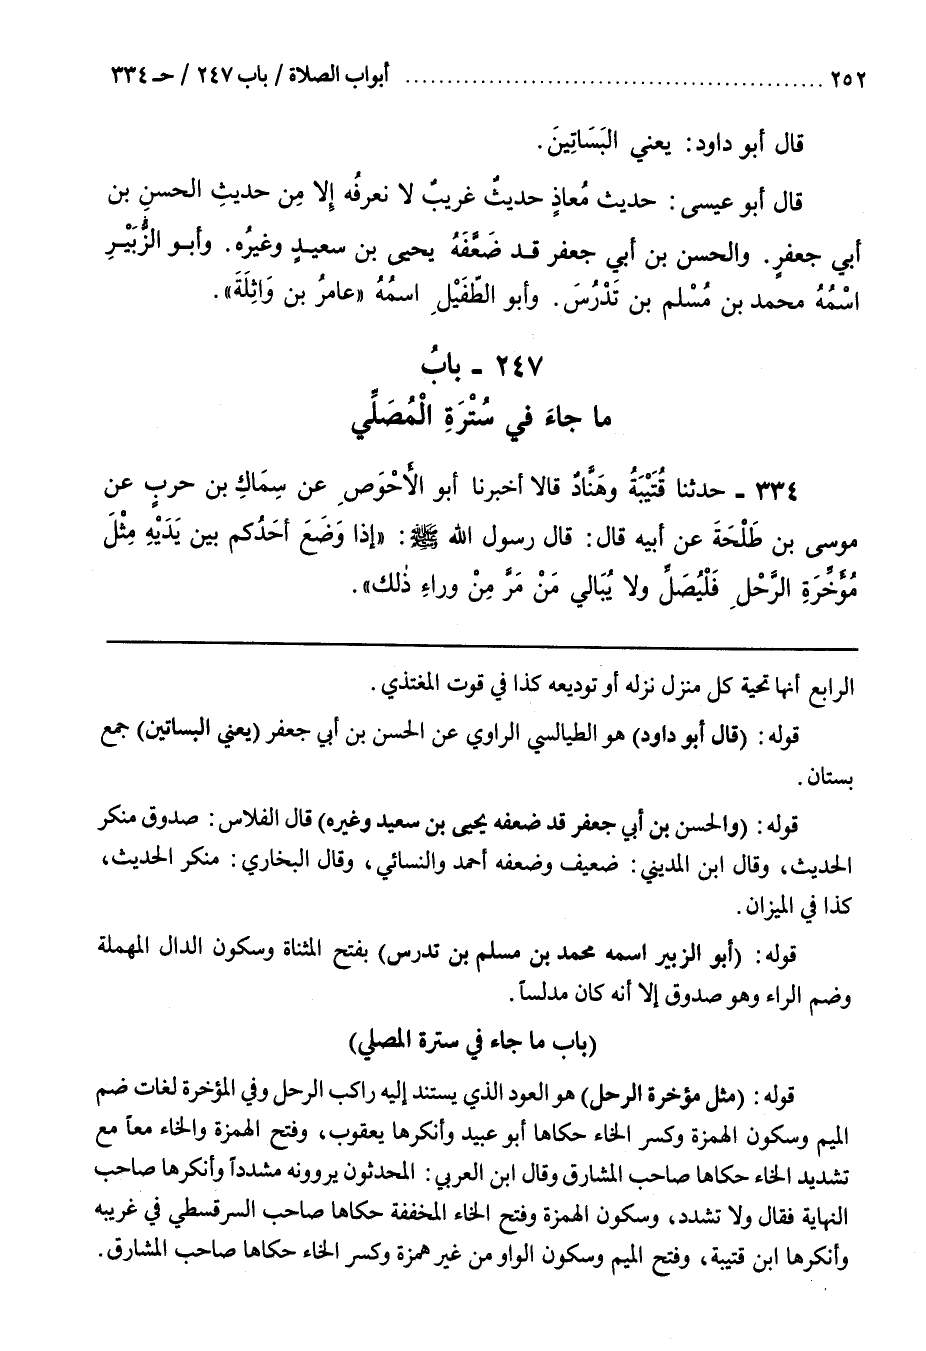 ٢٥٢ ........................................ أبواب الصلاة / باب ٢٤٧ / حـ ٣٣٤
قال أبو داود: يعني البَسَاتِينَ.
قال أبو عيسى: حديث مُعاذٍ حديثٌ غريبٌ لا نعرفُه إلا مِن حديثِ الحسنِ بن
أبي جعفرٍ. والحسن بن أبي جعفر قد ضَعَّفَهُ يحيى بن سعيدٍ وغيرُه. وأبو الزُّبَيْرِ
اسْمُهُ محمد بن مُسْلم بن تَدْرُسَ. وأبو الطُّفَيْلِ اسمُهُ «عامرُ بن وَاثِلَةَ».
٢٤٧ - بابُ
ما جاءَ في سُتْرَةِ الْمُصَلِّي
٣٣٤ - حدثنا قُتَيْبَةُ وهَنَّادٌ قالا أخبرنا أبو الأَحْوَصِ عن سِمَاكِ بن حربٍ عن
موسى بن طَلْحَةَ عن أبيه قال: قال رسول الله ﷺ: «إذا وَضَعَ أحَدُكم بين يَدَيْهِ مِثْلَ
مُؤَخِّرَةِ الرَّحْلِ فَلْيُصَلِّ ولا يُبَالي مَنْ مَرَّ مِنْ وراءِ ذٰلك».
الرابع أنها تحية كل منزل نزله أو توديعه كذا في قوت المغتذي.
قوله: (قال أبو داود) هو الطيالسي الراوي عن الحسن بن أبي جعفر (يعني البساتين) جمع
بستان.
قوله: (والحسن بن أبي جعفر قد ضعفه يحيى بن سعيد وغيره) قال الفلاس: صدوق منكر
الحديث، وقال ابن المديني: ضعيف وضعفه أحمد والنسائي، وقال البخاري: منكر الحديث،
كذا في الميزان.
قوله: (أبو الزبير اسمه محمد بن مسلم بن تدرس) بفتح المثناة وسكون الدال المهملة
وضم الراء وهو صدوق إلا أنه كان مدلساً.
(باب ما جاء في سترة المصلي)
قوله: (مثل مؤخرة الرحل) هو العود الذي يستند إليه راكب الرحل وفي المؤخرة لغات ضم
الميم وسكون الهمزة وكسر الخاء حكاها أبو عبيد وأنكرها يعقوب، وفتح الهمزة والخاء معاً مع
تشديد الخاء حكاها صاحب المشارق وقال ابن العربي: المحدثون يروونه مشدداً وأنكرها صاحب
النهاية فقال ولا تشدد، وسكون الهمزة وفتح الخاء المخففة حكاها صاحب السرقسطي في غريبه
وأنكرها ابن قتيبة، وفتح الميم وسكون الواو من غير همزة وكسر الخاء حكاها صاحب المشارق.